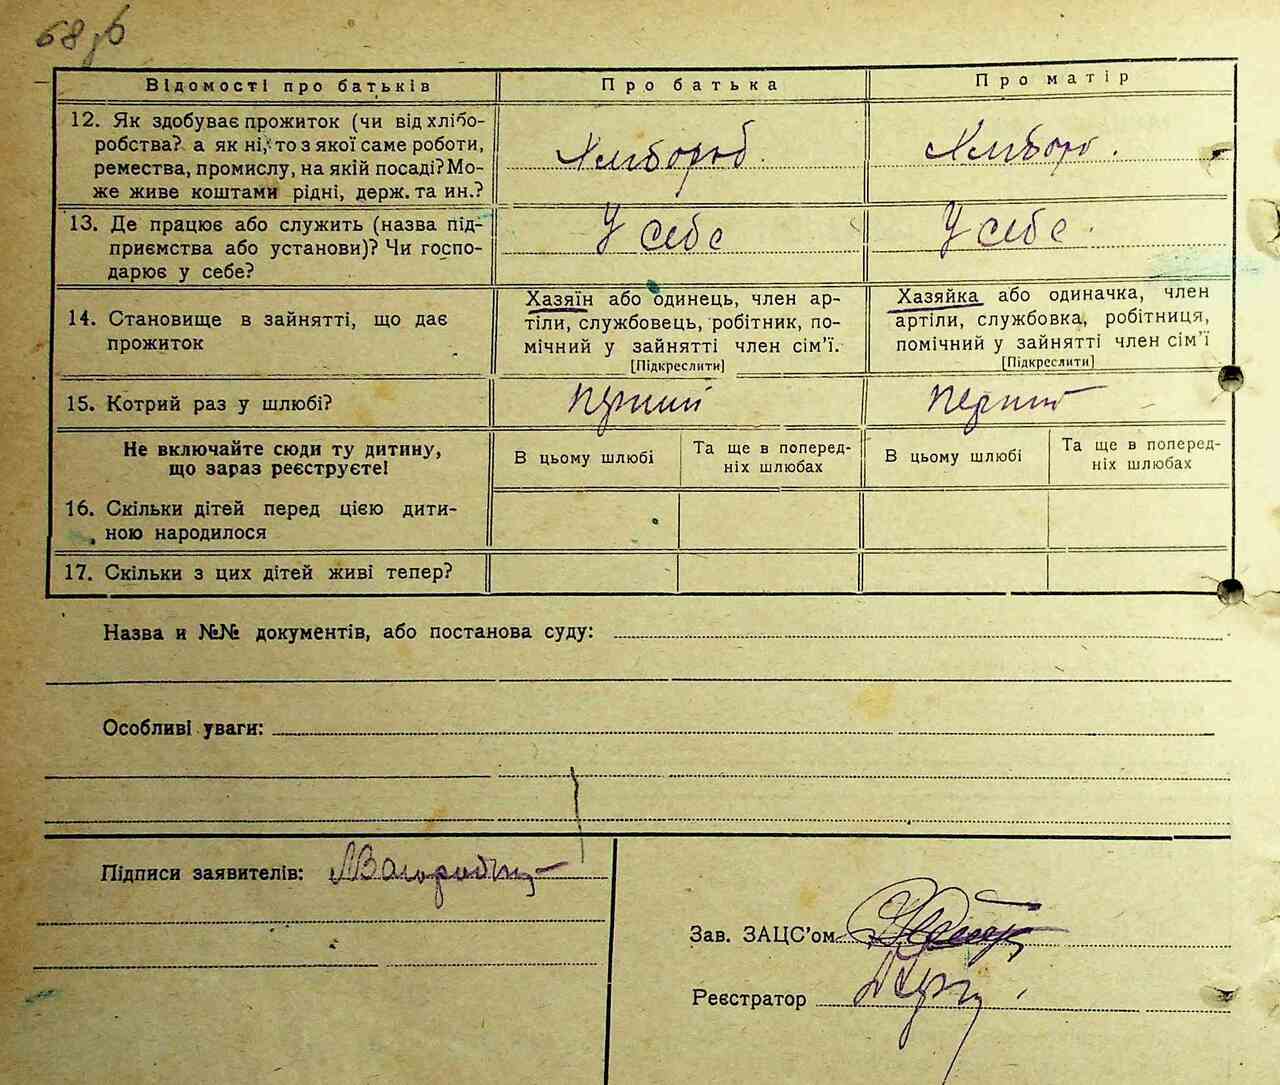 68
Відомості про батьків
Про батька
Про матір
12. Як здобуває прожиток (чи від хлібо-
робства? а як ні, то з якої саме роботи,
ремества, промислу, на якій посаді? Мо-
же живе коштами рідні, держ. та ин.?
Хлибороб.
Хлиборо.
13. Де працює або служить (назва під-
приємства або установи)? Чи госпо-
дарює у себе?
У себе
У себе.
14. Становище в зайнятті, що дає
прожиток
Хазяїн або одинець, член ар-
тіли, службовець, робітник, по-
мічний у зайнятті член сім'ї.
[Підкреслити]
Хазяйка або одиначка, член
артіли, службовка, робітниця,
помічний у зайнятті член сім'ї
[Підкреслити]
15. Котрий раз у шлюбі?
перший
перший
Не включайте сюди ту дитину,
що зараз реєструєте!
В цьому шлюбі
Та ще в поперед-
ніх шлюбах
В цьому шлюбі
Та ще в поперед-
ніх шлюбах
16. Скільки дітей перед цією дити-
ною народилося
17. Скільки з цих дітей живі тепер?
Назва и №№ документів, або постанова суду:
Особливі уваги:
Підписи заявителів:
Зав. ЗАЦС'ом
Реєстратор